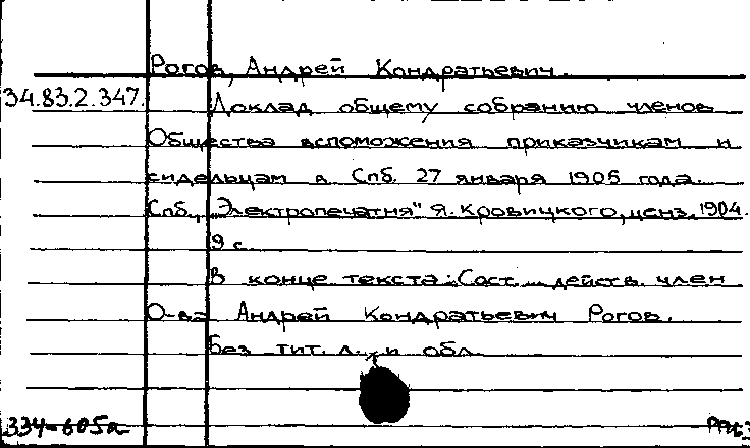 Рогов, Андрей Кондратьевич.
34.83.2.347. Доклад общему собранию членов
Общества вспоможения приказчикам и
сидельцам в Спб. 27 января 1905 года.
Спб., "Электропечатня" Я. Кровицкого, ценз. 1904.
9 с.
В конце текста: Сост. ... действ. член
О-ва Андрей Кондратьевич Рогов.
Без тит. л. и обл.
334-605а